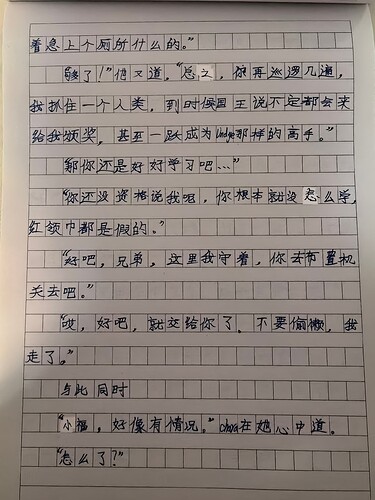 着急上个厕所什么的。”
“够了！”他又道，“总之，你再巡逻几遍，
我抓住一个人类，到时候国王说不定都会来
给我颁奖，甚至一跃成为Undyne那样的高手。”
“那你还是好好学习吧…”
“你还没资格说我呢，你根本就没怎么学，
红领巾都是假的。”
“好吧，兄弟，这里我守着，你去布置机
关去吧。”
“哎，好吧，就交给你了。不要偷懒，我
走了。”
与此同时
“小福，好像有情况。”Chara在她心中道。
“怎么了？”